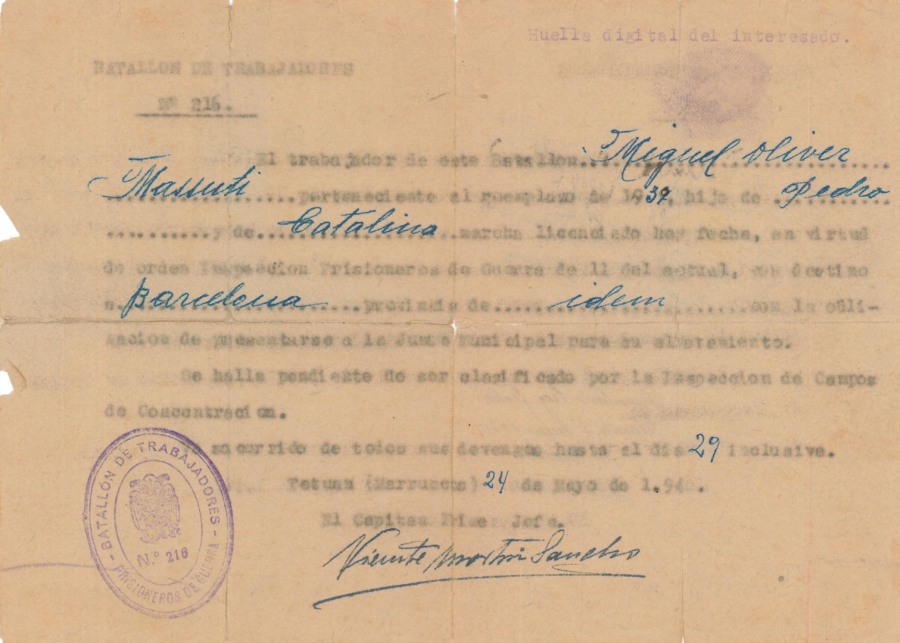 Huella digital del interesado.
BATALLON DE TRABAJADORES
Nº 216.
El trabajador de este Batallon.. Miguel Oliver
Massuti.......pertenneciente al reemplazo de 1932, hijo de Pedro
..........y de....Catalina..marcha licenciado hoy fecha, en virtud
de orden Inspeccion Prisioneros de Guerra de 11 del actual, con destino
a Barcelona....provincia de......idem..........con la obli-
gacion de presentarse a la Junta Municipal para su alistamiento.
Se halla pendiente de ser clasificado por la Inspeccion de Campos
de Concentracion.
socorrido de todos sus devengos hasta el dia 29 inclusive.
Tetuan (Marruecos) 24 de Mayo de 1.940.
El Capitan Primer Jefe.
Vicente Martin Sancho
- BATALLÓN DE TRABAJADORES -
N.º 216
PRISIONEROS DE GUERRA